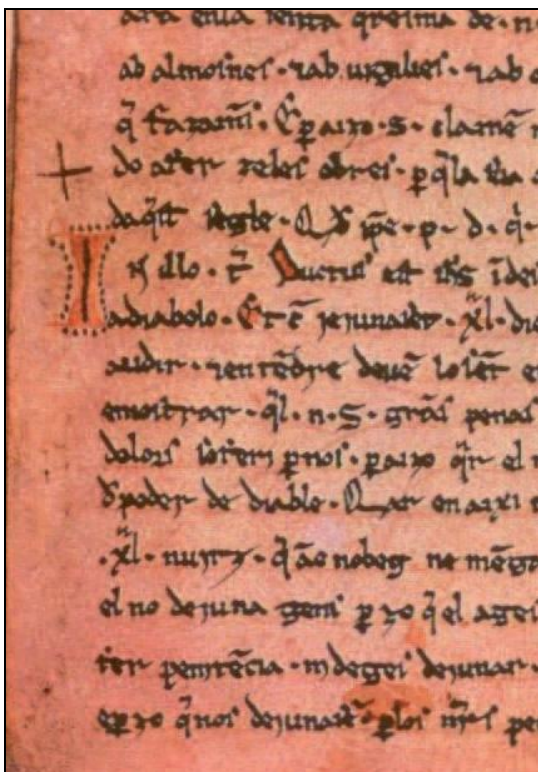 ara en la senta q̄resma de . n .
ab almosnes . ⁊ ab uigilies . ⁊ ab
q̄ faram̄ . E ꝑ aizo . S . clamē
do afer ⁊ eles obres . ꝑ q̄la
daq̄st segle . Q̄d ip̄e . p . d . q̄ .
IN illo . t̄ Ductus est ih̄s ī de
a diabolo . Et c̄ jejunasset . xl . di
audir . ⁊ entēdre deuē lo sēt e
emostrar . q̄l . n . S . gr̄as penas
dolors soferi ꝑ nos . ꝑ aizo q̄r el
d poder de diable . Qar en aixi
. xl . nuitz . q̄ āc no beg ne mēga
el no dejuna gens ꝑ zo q̄ el ages
fer penitēcia . ni deges dejunar .
e ꝑ zo q̄ nos dejunasē ꝑ los nr̄es pe